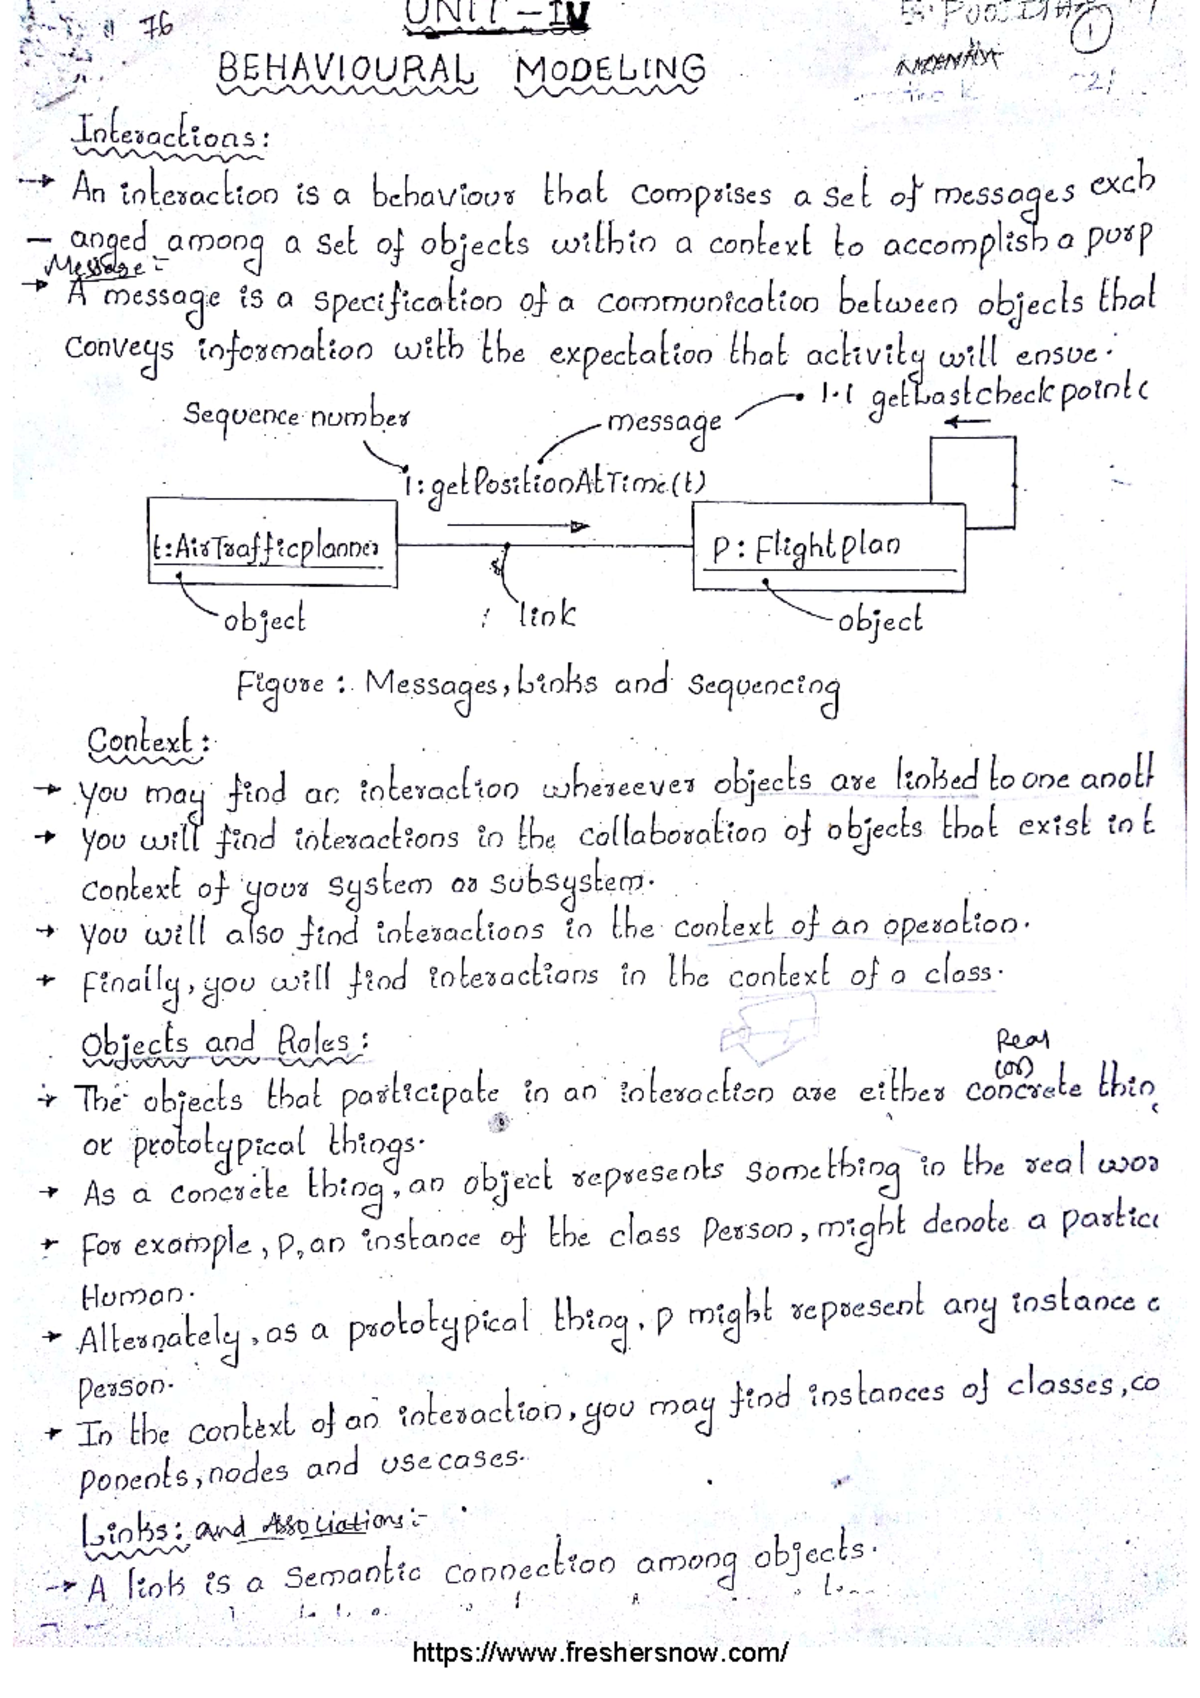 76
UNIT-IV
1
BEHAVIOURAL MODELING
Interactions:
→ An interaction is a behaviour that comprises a set of messages exch
– anged among a set of objects within a context to accomplish a purp
Message:-
→ A message is a specification of a communication between objects that
conveys information with the expectation that activity will ensue.
1.1 getLastcheckpoint(
Sequence number
message
1:getPositionAtTime(t)
t:AirTrafficplanner
P:Flightplan
object
link
object
Figure: Messages, Links and Sequencing
Context:
→ you may find an interaction whereever objects are linked to one anoth
→ you will find interactions in the collaboration of objects that exist in t
context of your system or subsystem.
→ you will also find interactions in the context of an operation.
→ Finally, you will find interactions in the context of a class.
Objects and Roles:
Real
(or)
→ The objects that participate in an interaction are either concrete thin
or prototypical things.
→ As a concrete thing, an object represents something in the real wor
→ For example, P, an instance of the class Person, might denote a partic
Human.
→ Alternately, as a prototypical thing, p might represent any instance
person.
→ In the context of an interaction, you may find instances of classes, co
ponents, nodes and use cases.
Links: and Associations:-
→ A link is a Semantic connection among objects.
https://www.freshersnow.com/